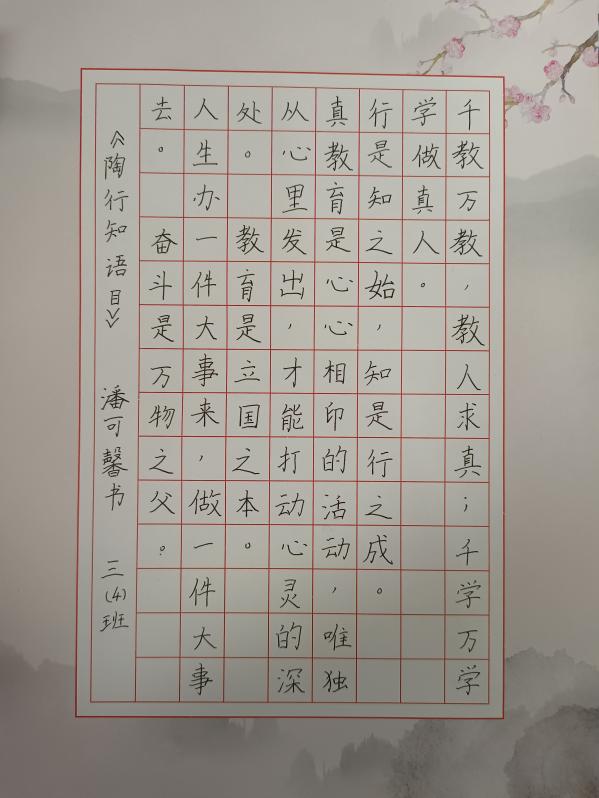 千教万教，教人求真；千学万学
学做真人。
行是知之始，知是行之成。
真教育是心心相印的活动，唯独
从心里发出，才能打动心灵的深
处。 教育是立国之本。
人生办一件大事来，做一件大事
去。 奋斗是万物之父。
《陶行知语目》 潘可馨书 三(4)班